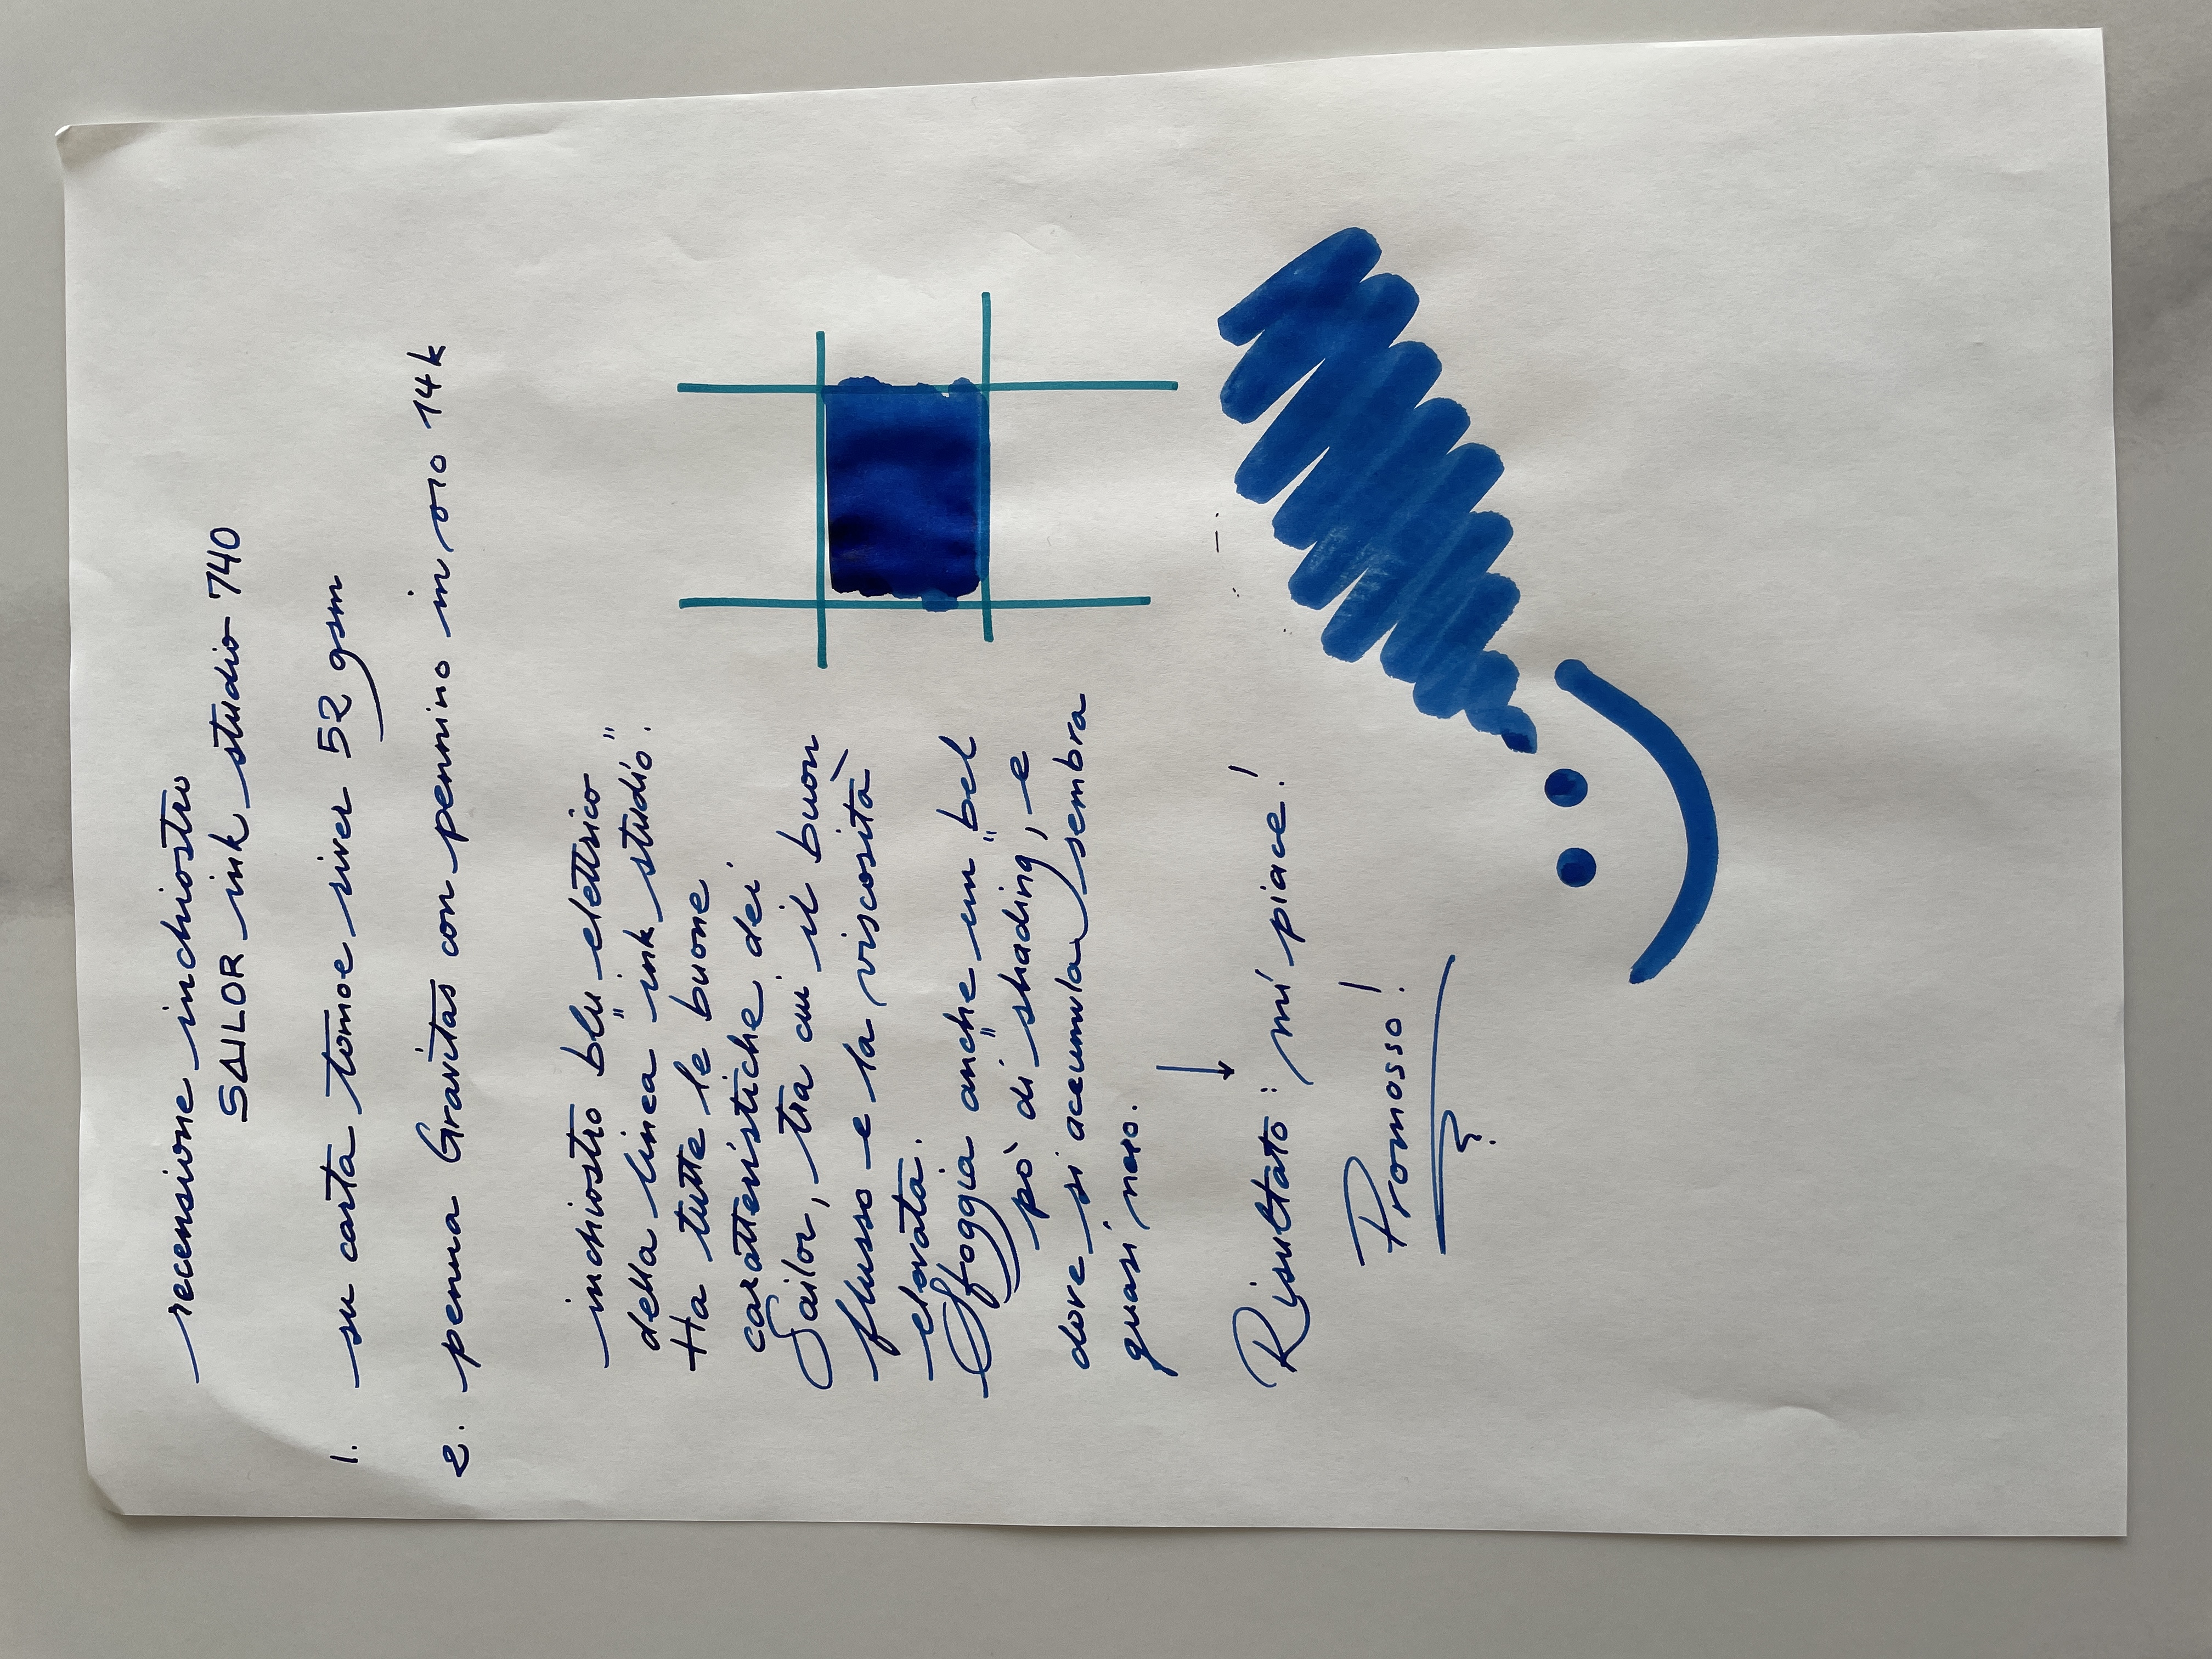 recensione inchiostro
SAILOR ink studio 740
1. su carta tomoe river 52 gsm
2. penna Gravitas con pennino in oro 14k
inchiostro blu elettrico
della linea "ink studio".
Ha tutte le buone
caratteristiche dei
Sailor, tra cui il buon
flusso e la viscosità
elevata.
Sfoggia anche un "bel
pò" di shading, e
dove si accumula sembra
quasi nero.
Risultato: mi piace!
Promosso!